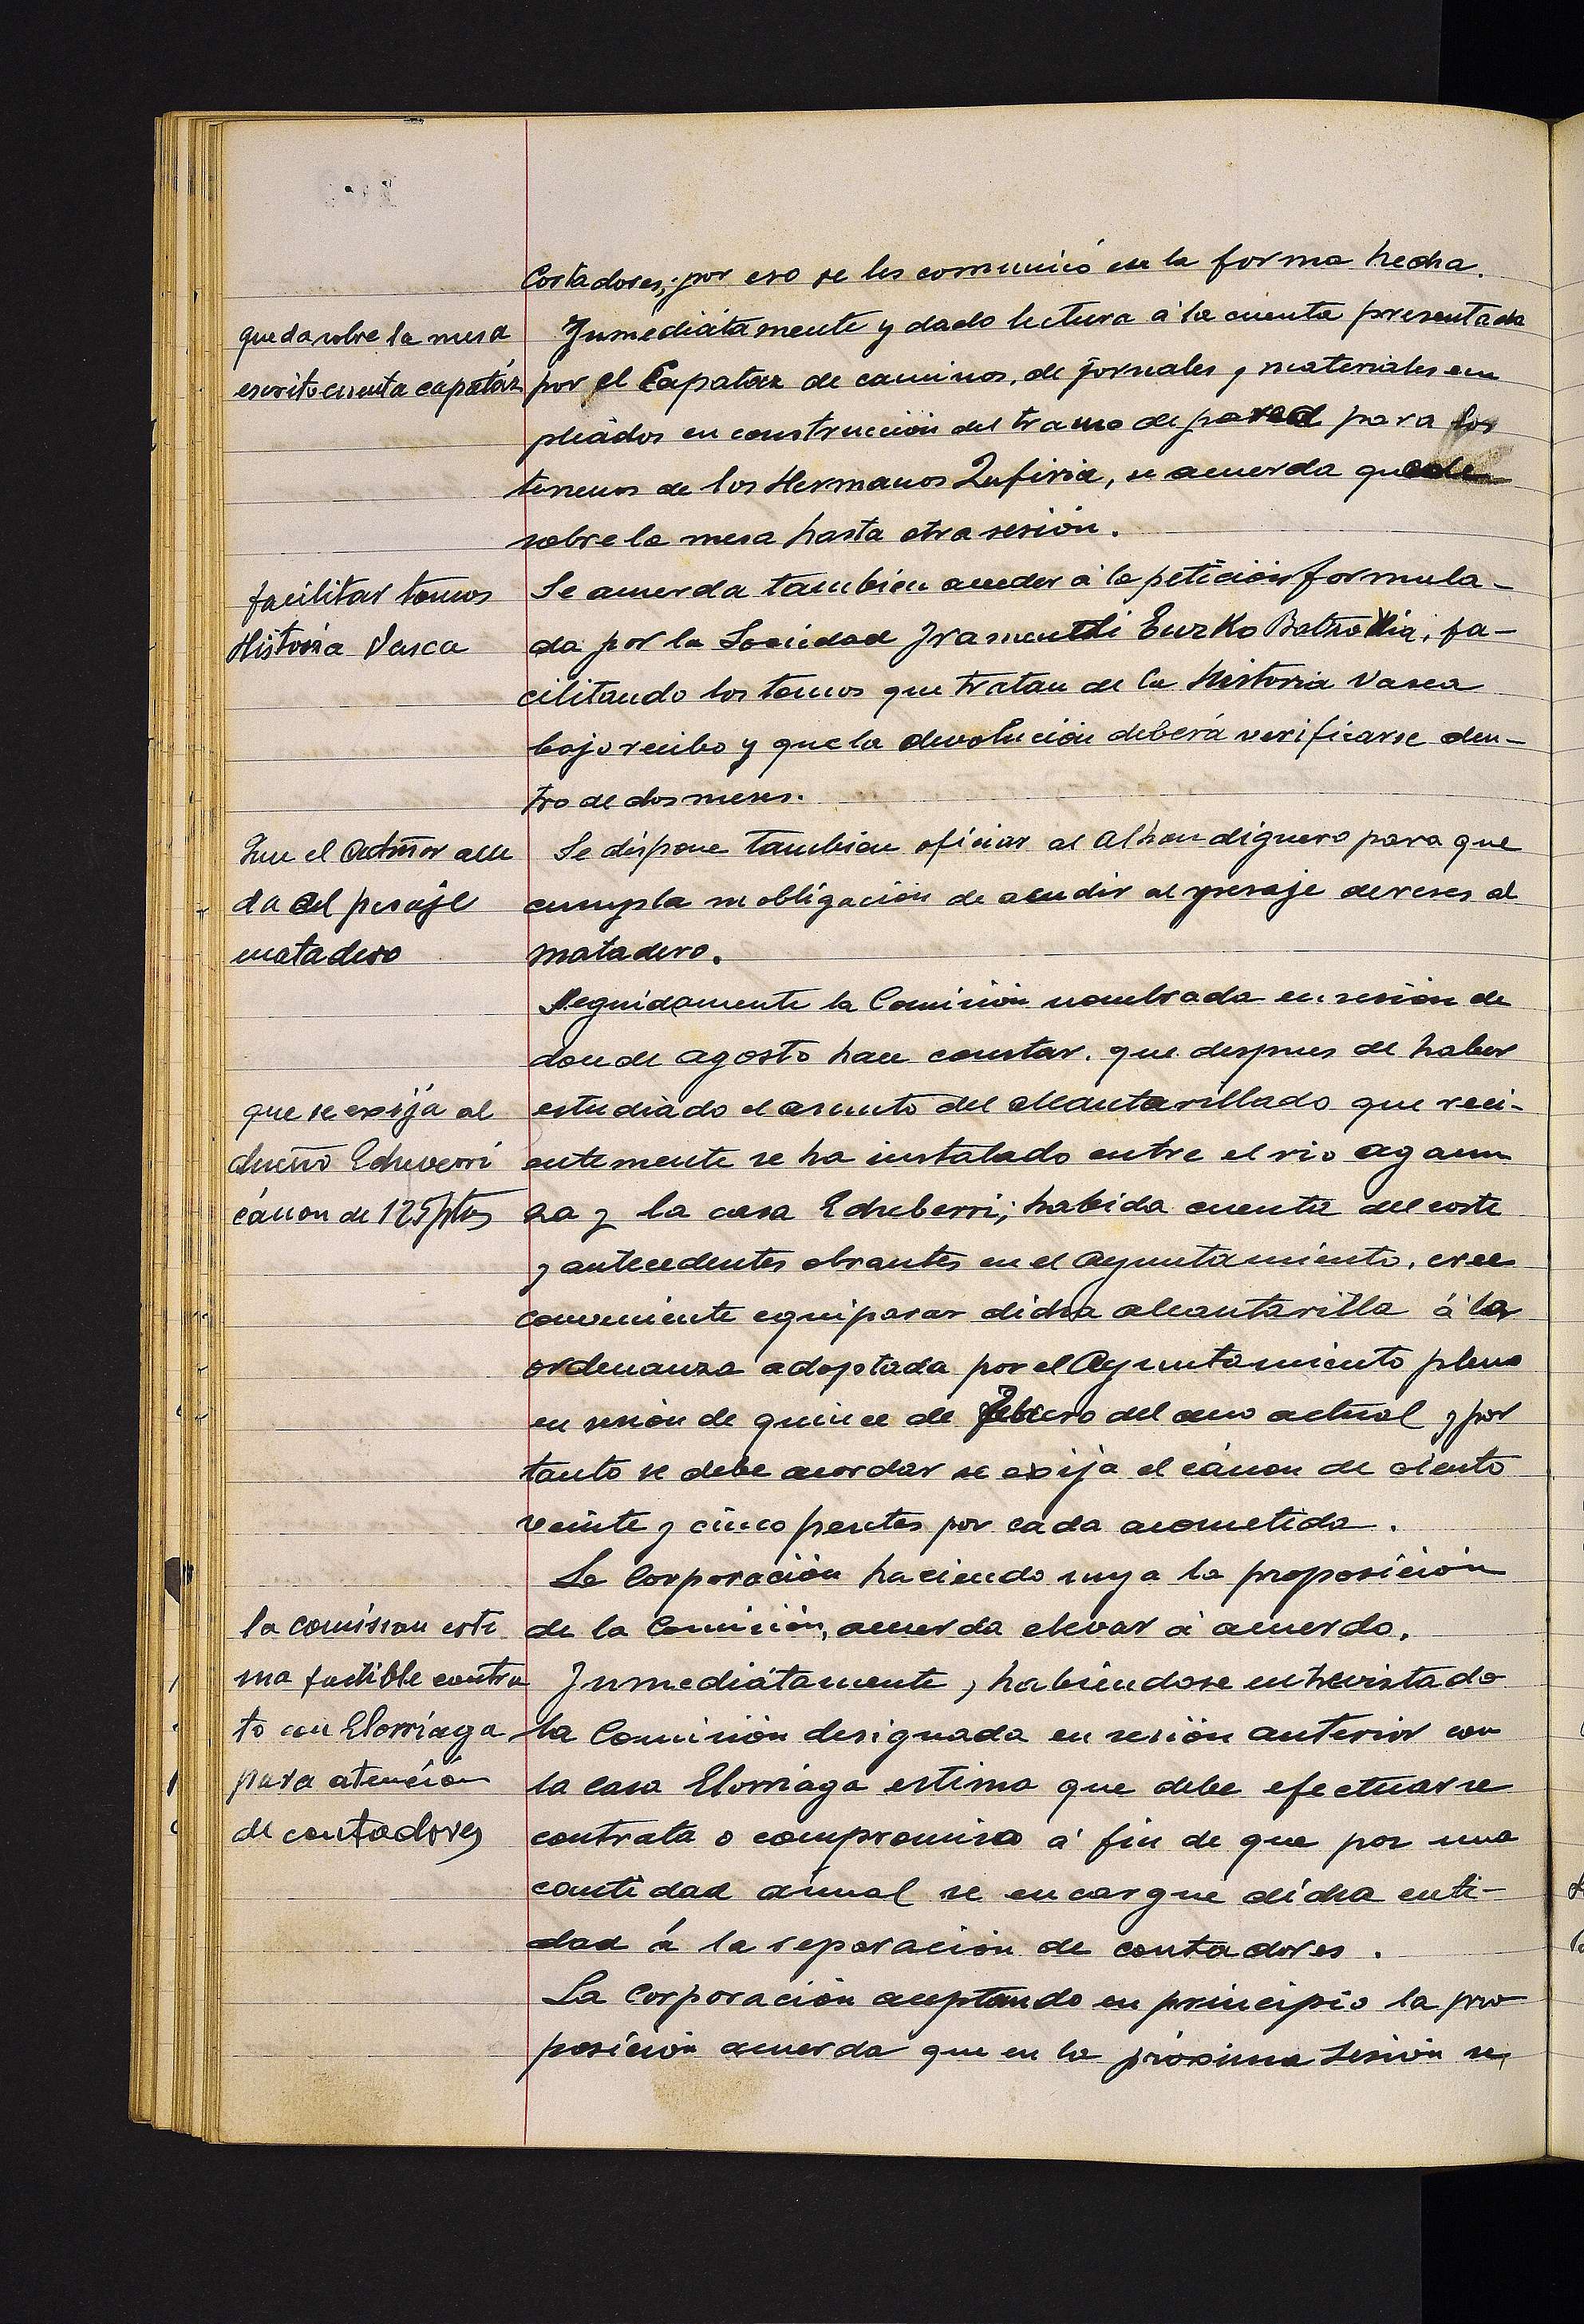 Costadores; por eso se les comunicó en la forma hecha.
queda sobre la mesa
escrito cuenta capatáz
Inmediátamente y dado lectura á la cuenta presentada
por el Capataz de caminos, de jornales y materiales em
pleádos en construcción del tramo de pared para los
terrenos de los Hermanos Zufiria, se acuerda quede
sobre la mesa hasta otra sesión.
facilitar tomos
História Vasca
Se acuerda tambien acceder á la petición formula-
da por la Sociedad Euzko fa-
cilitando los tomos que tratan de la Historia Vasca
bajo recibo y que la devolución deberá verificarse den-
tro de dos meses.
Que el Admor acu
da al pesaje
matadero
Se dispone tambien oficiar al Alhondiguero para que
cumpla su obligación de acudir al pesaje de reses al
matadero.
Seguidamente la Comisión nombrada en sesión de
de agosto hace constar, que despues de haber
que se exija al
dueño Echeverri
cánon de 125 ptas
estudiado el asunto del alcantarillado que reci-
entemente se ha instalado entre el rio Agaun
za y la casa Echeberri; habida cuenta del coste
y antecedentes obrantes en el Ayuntamiento, cree
conveniente equiparar dicha alcantarilla á la
ordenanza adoptada por el Ayuntamiento pleno
en sesión de quince de Febrero del ano actual y por
tanto se debe acordar se exija el cánon de ciento
veinte y cinco pesetas por cada acometida.
La Corporación haciendo suya la proposición
de la Comisión, acuerda elevar á acuerdo.
la comision esti
ma factible contra
to con Elorriaga
para atención
de contadores
Inmediátamente, habiendose entrevistado
la Comisión designada en sesión anterior con
la casa Elorriaga estima que debe efectuarse
contrata o compromiso á fin de que por una
cantidad ánual se encargue dicha enti-
dad á la reparación de contadores.
La Corporación aceptando en principio la pro
posición acuerda que en la próxima sesión se